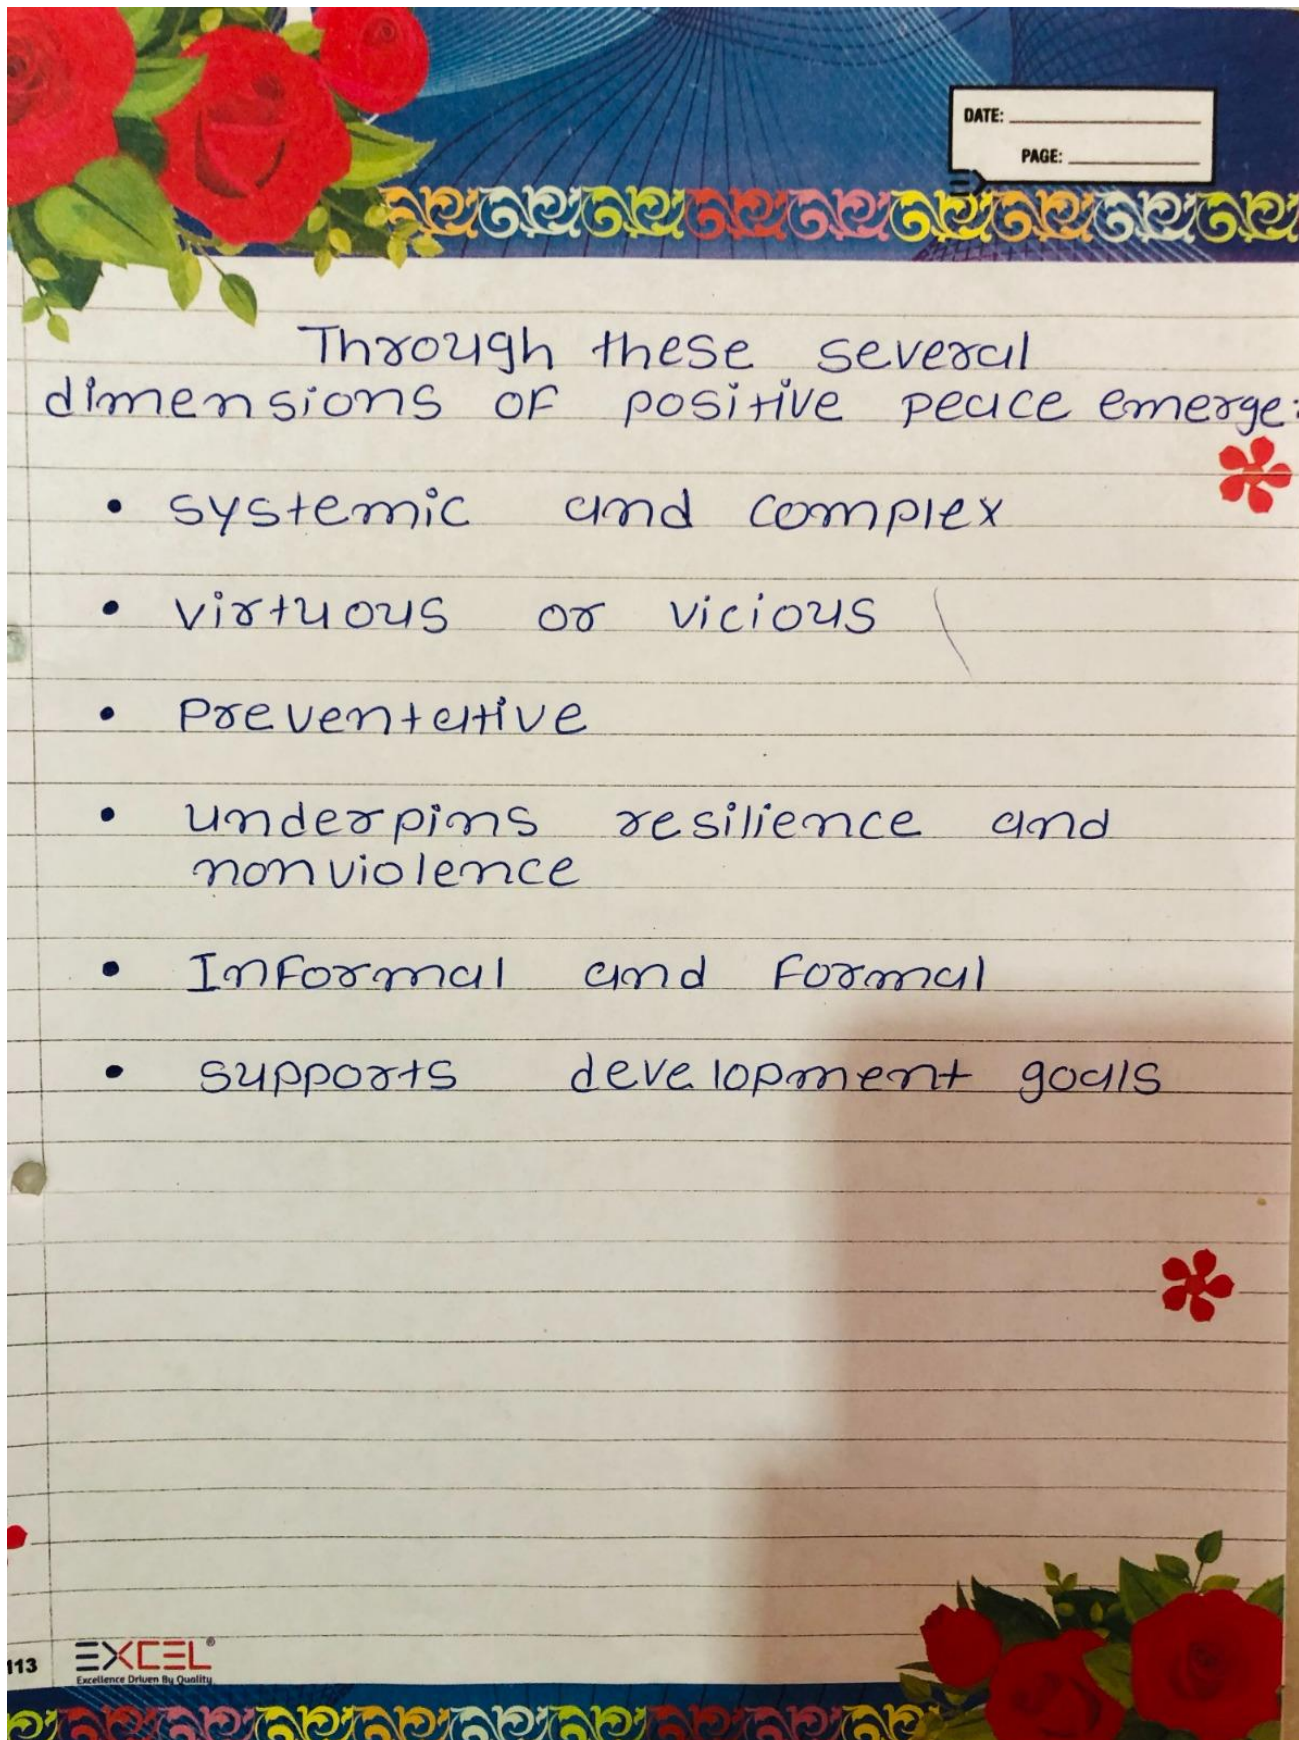 DATE:
PAGE:
Through these several
dimensions of positive peace emerge:
• systemic and complex
• virtuous or vicious
• Preventative
• underpins resilience and
nonviolence
• Informal and Formal
• supports development goals
113
EXCEL®
Excellence Driven By Quality